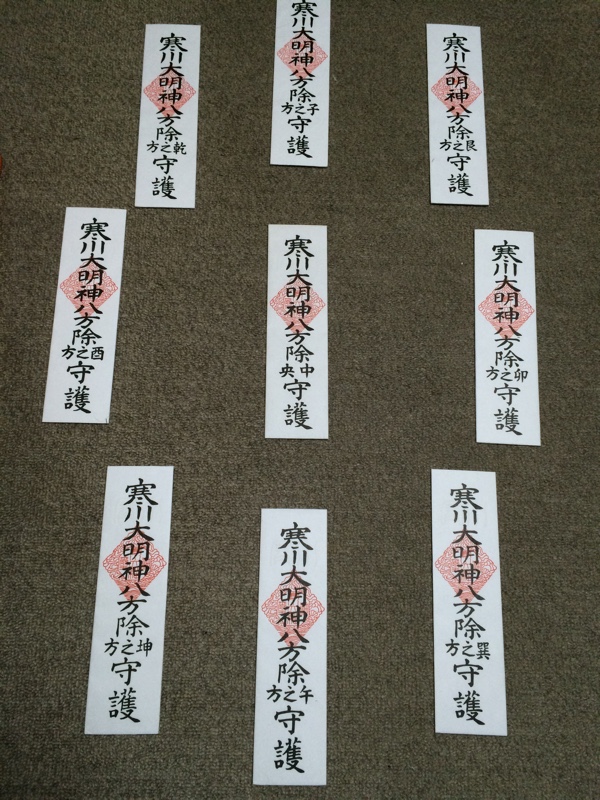 寒川大明神八方除乾之方守護
寒川大明神八方除子之方守護
寒川大明神八方除艮之方守護
寒川大明神八方除酉之方守護
寒川大明神八方除中央守護
寒川大明神八方除卯之方守護
寒川大明神八方除坤之方守護
寒川大明神八方除午之方守護
寒川大明神八方除巽之方守護